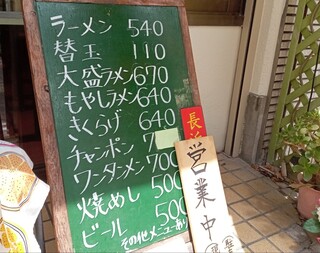 ラーメン 540
替玉 110
大盛ラメン 670
もやしラメン 640
きくらげ 640
チャンポン 7
ワンタンメン 700
焼めし 500
ビール 500
その他メニューあり
長
営業中